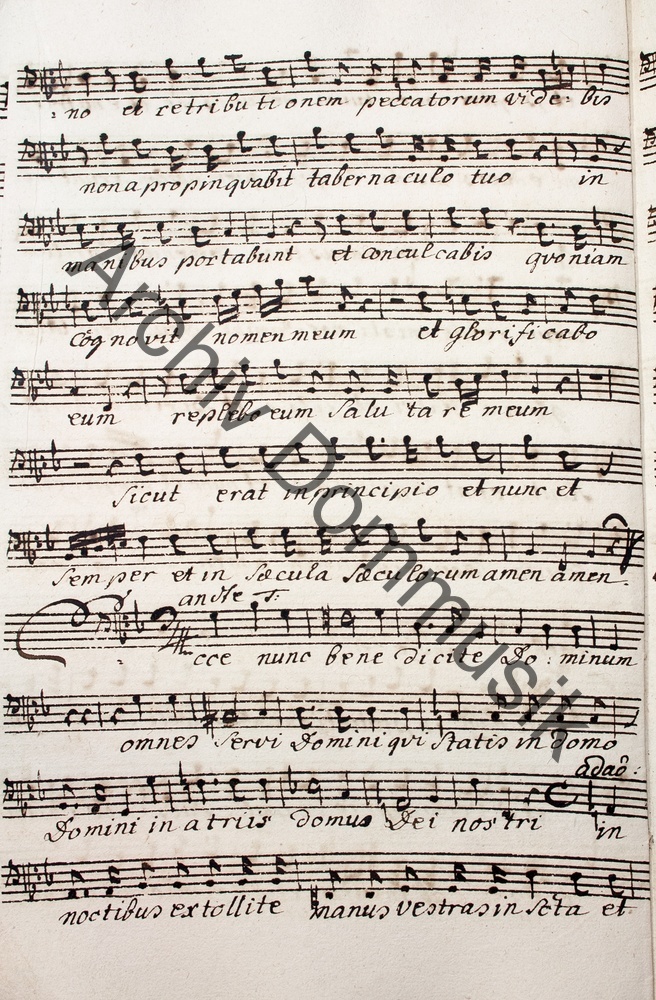 : no et retributionem peccatorum vide: bis
non apropinqvabit tabernaculo tuo in
manibus portabunt et conculcabis qvoniam
cognovit nomen meum et glorificabo
eum replebo eum salutare meum
sicut erat in principio et nunc et
semper et in sæcula sæculorum amen amen
cce nunc benedicite Do: minum
omnes servi Domini qvi statis in domo
adao:
Domini in atriis domus Dei nostri in
noctibus extollite manus vestras in scta et
Archiv Dommusik